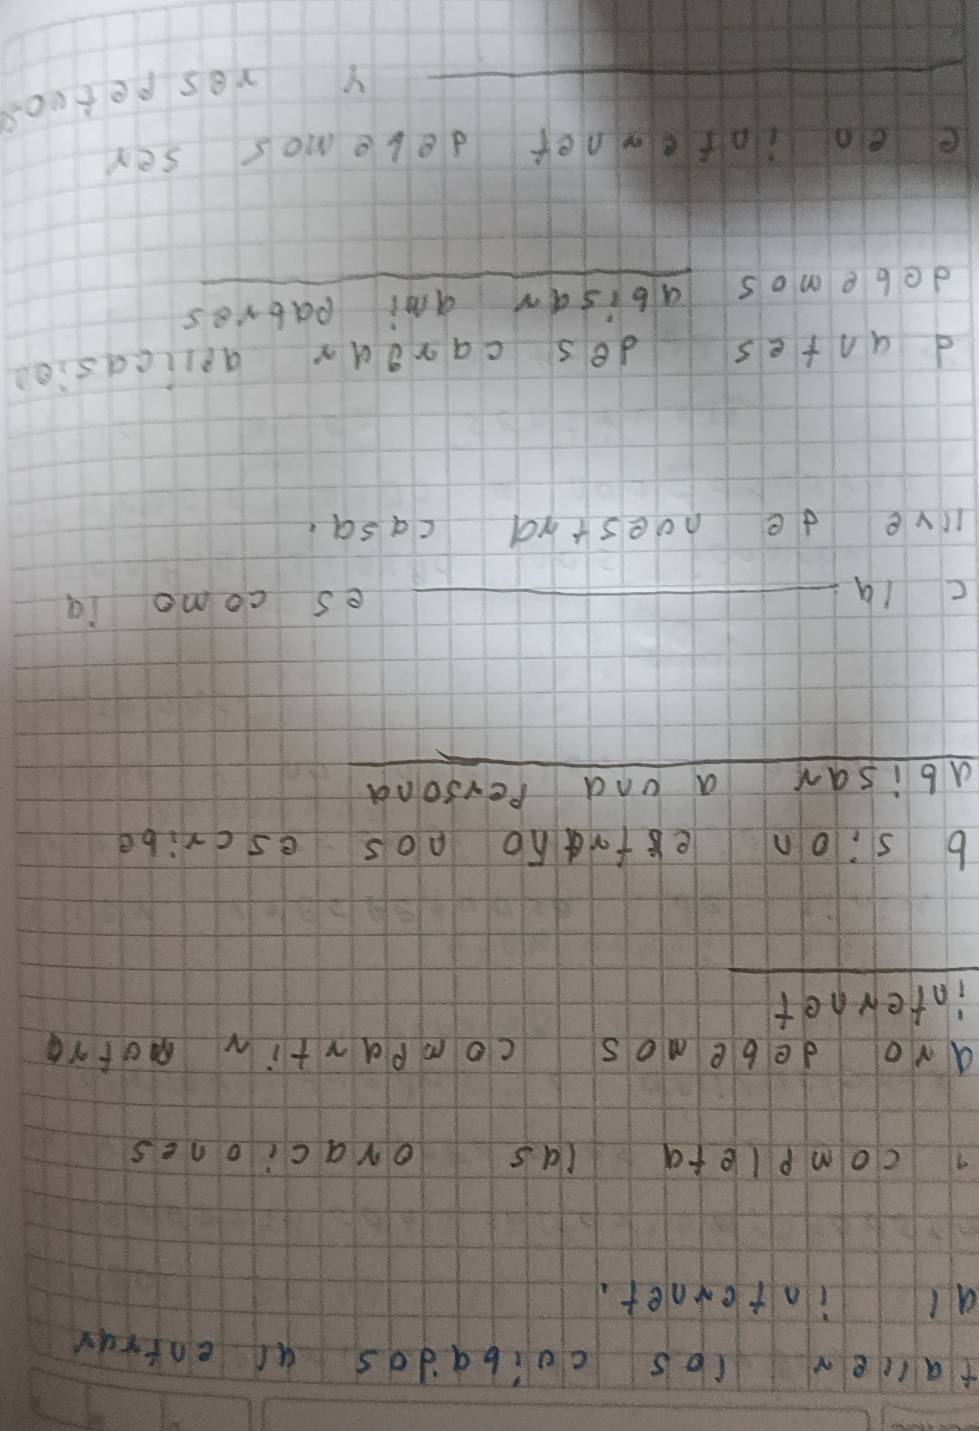 taller los cuibados al entrar
al internet.
1 completa las oraciones
a no debemos compartir
internet
b sion extraño nos escribe
abisar a una persona
c la es como la
llve de nuestra casa.
d antes des cargar aplicasion
debemos abisar ami pabres
e en internet debemos ser
y respetuos